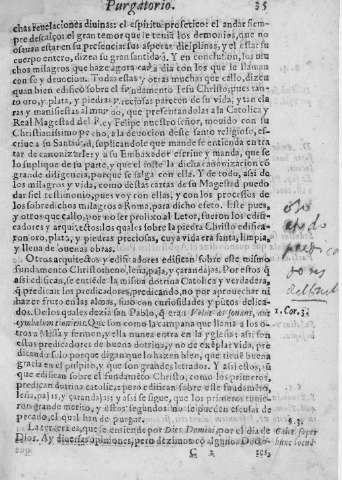 Purgatorio. 35
chas reuelaciones diuinas: el espiritu profetico: el andar siem-
pre descalço: el gran temor que le tenia los demonios, que no
osauan estar en su presencia: sus asperas diciplinas, y el estar su
cuerpo entero, dizen su gran santidad. Y en conclusion, los mu
chos milagros que haze agora cada dia con los que le llaman
con fe y deuocion. Todas estas y otras muchas que callo, dizen
quan bien edificò sobre el fundamento Iesu Christo, pues tan-
to oro, y plata, y piedras preciosas parecen de su vida, y tan cla
ras y manifiestas al mundo, que presentandolas a la Catolica y
Real Magestad del Rey Felipe nuestro señor, mouido con su
Christianissimo pecho, a la deuocion deste santo religioso, es-
criue a su Santidad, suplicandole que mande se entienda en tra
tar de canonizarle: y a su Embaxador escriue y manda, que se
lo suplique de su parte, y que el inste la dicha canonizacion có
grande diligencia, porque se salga con ella. Y de todo, assi de
los milagros y vida, como destas cartas de su Magestad puedo
dar fiel testimonio, pues voy con ellas, y con los processos de
los sobredichos milagros a Roma, para dicho efeto. Este pues,
y otros que callo, por no ser prolixo al Letor, fueron los edifi-
cadores y arquitectos los quales sobre la piedra Christo edifica-
ron oro, plata, y piedras preciosas, cuya vida era santa, limpia,
y llena de buenas obras.
Otros arquitectos y edificadores edifican sobre este mismo
fundamento Christo: heno, leña, paja, y çarandajas. Por estos q
assi edifican, se entiède la misera dotrina Catolica y verdadera,
q predican los predicadores, predicando, no por aprouechar ni
hazer fruto en las almas, sino con curiosidades y putos delica-
dos. De los quales dezia san Pablo, q eran Velut æs sonans, aut
cymbalum tinniens. Que son como la campana que llama a los o-
tros a Missa y sermon, y ella nunca entra en la yglesia: assi son
estos predicadores de buena dotrina, y no de exèplar vida, pre
dicando solo porque digan que lo hazen bien, que tiene buena
gracia en el pulpito, y que son grandes letrados. Y assi estos, au
que edifican sobre el fundamèto Christo, como los primeros,
predican dotrina catolica: pero edifican sobre este fundamèto,
leña, paja, y çarandajas: y assi se sigue, que los primeros tuuie-
ron grande merito, y estos segundos no se pueden escusar de
pecado, el qual han de purgar.
La tercera es, que se entiende por Dies Domini, por el dia de
Dios. Ay diuersas opiniones, pero dezimos cò algunos Docto-
res,
1. Cor. 3.